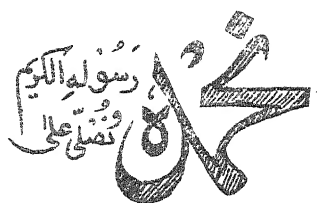 نحمدہ
و نصلی علی
رسوله الکریم